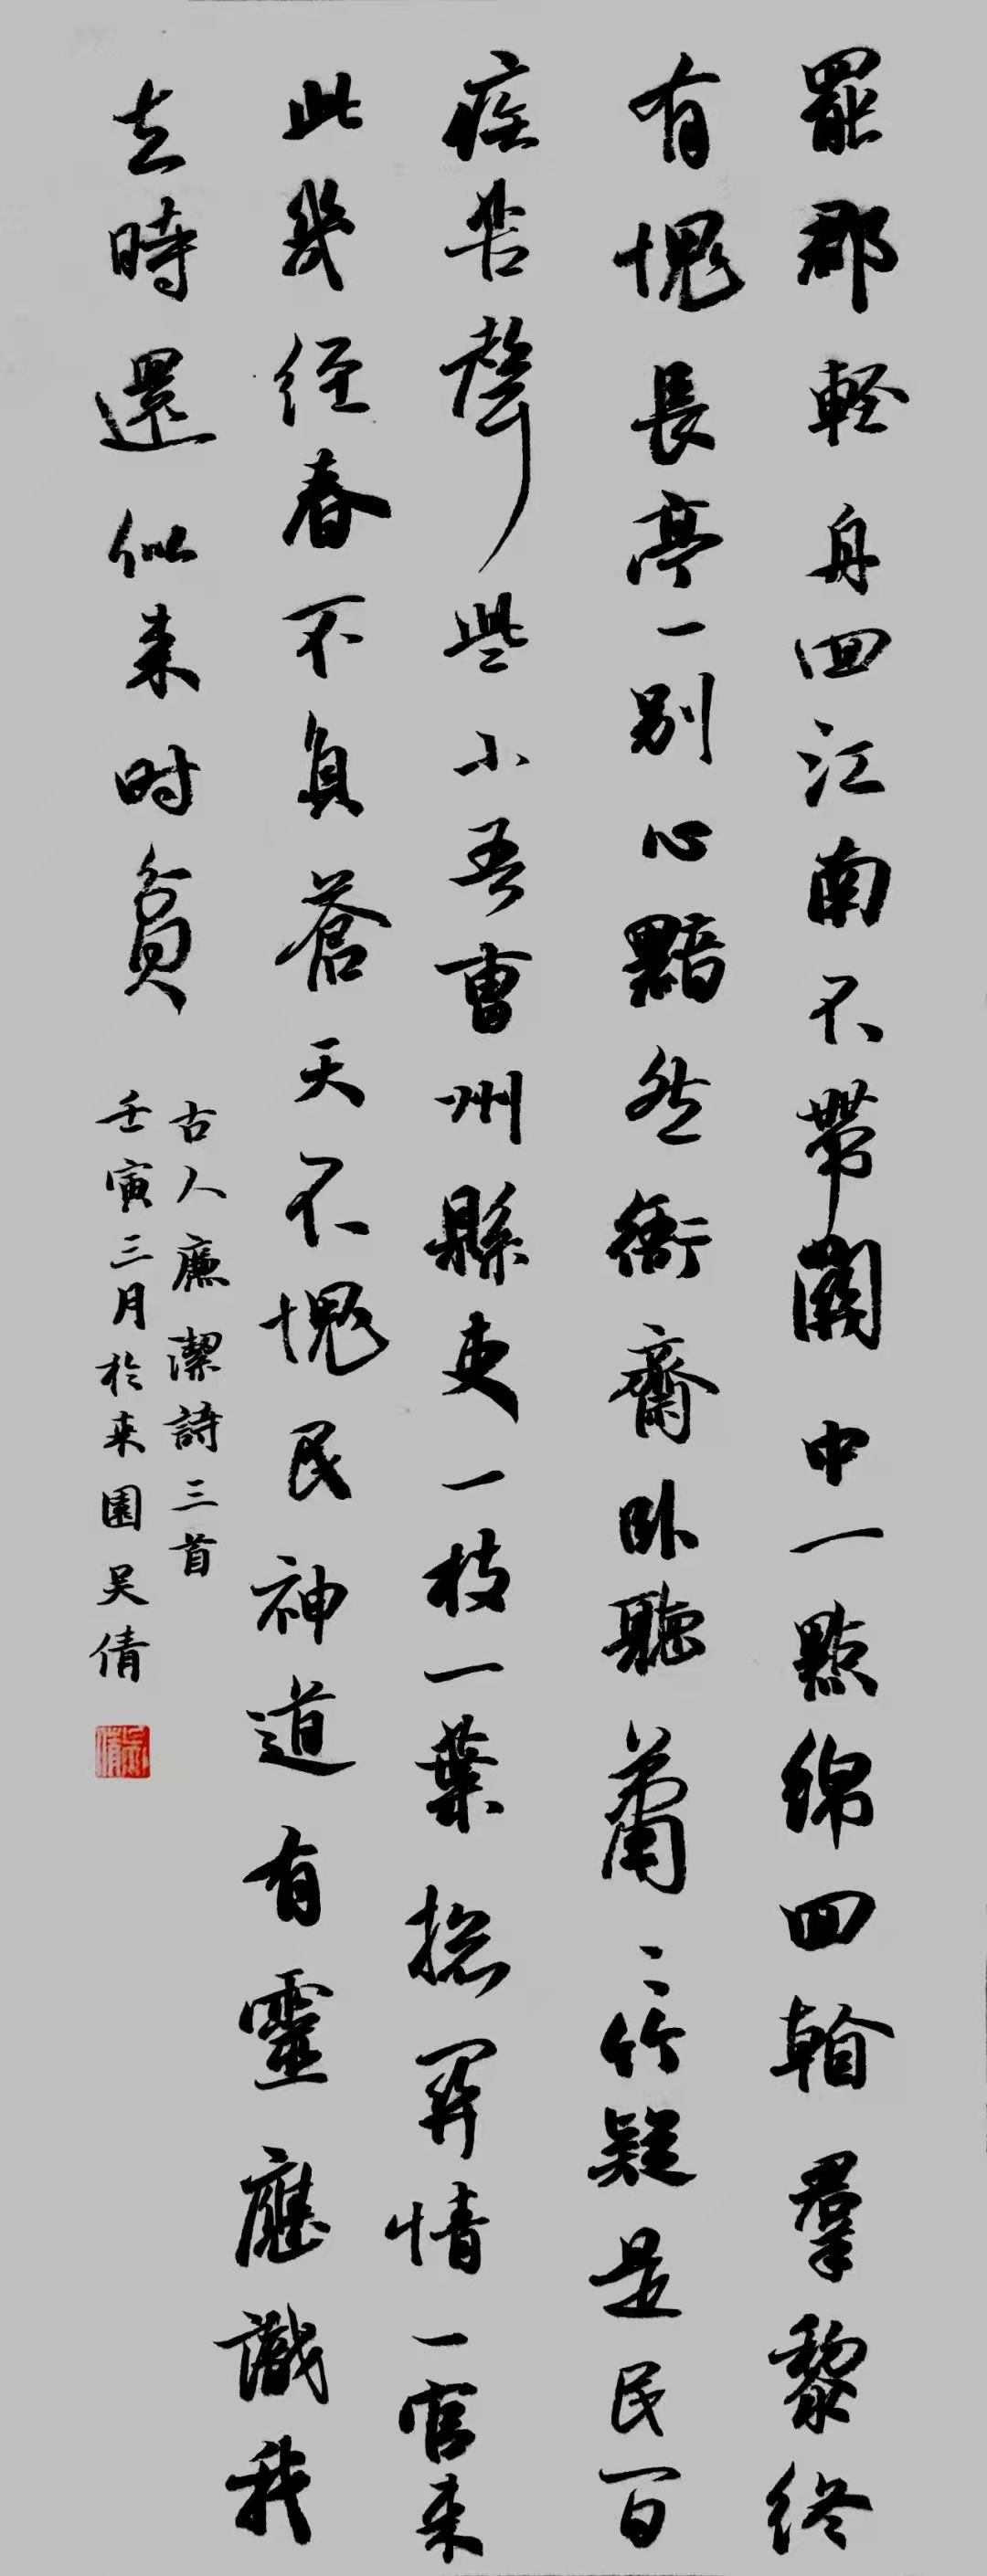 罷郡軽舟回江南不帶關中一點綿回看羣黎終
有愧長亭一別心黯然衙齋卧聽蕭〻竹疑是民間
疾苦聲些小吾曹州縣吏一枝一葉總關情一官来
此幾經春不負蒼天不愧民神道有靈應識我
去時還似来时貧
古人廉潔詩三首
壬寅三月於来園吴倩
吴倩